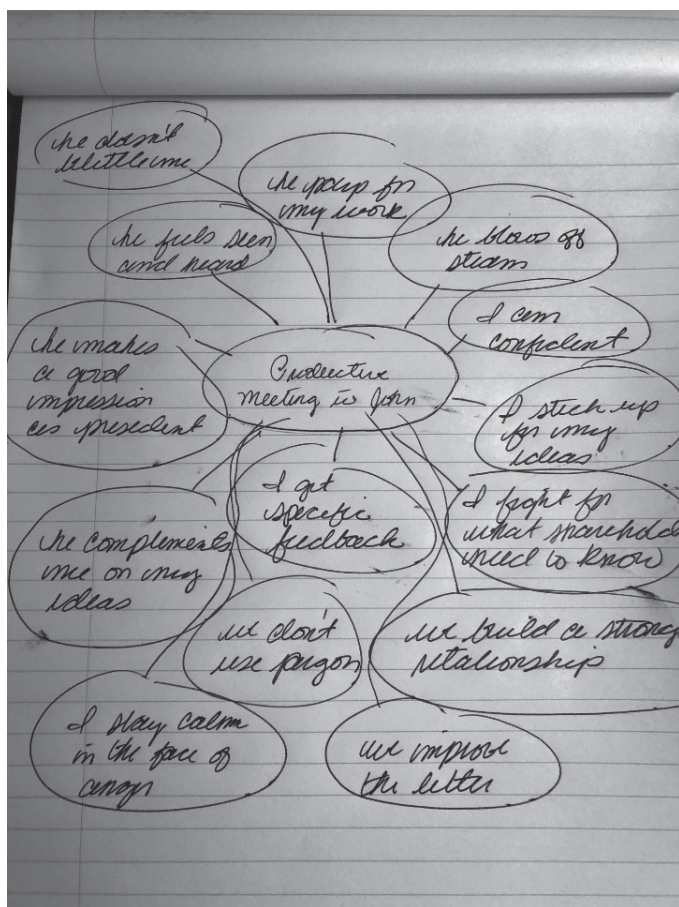 he doesn't
belittle me
he pays for
my work
he feels seen
and heard
he blows off
steam
I am
confident
he makes
a good
impression
as president
Productive
meeting w John
I stick up
for my
ideas
I get
specific
feedback
I fight for
what sharehold
need to know
he complements
me on my
ideas
we don't
use jargon
we build a strong
relationship
I stay calm
in the face of
anger
we improve
the letter